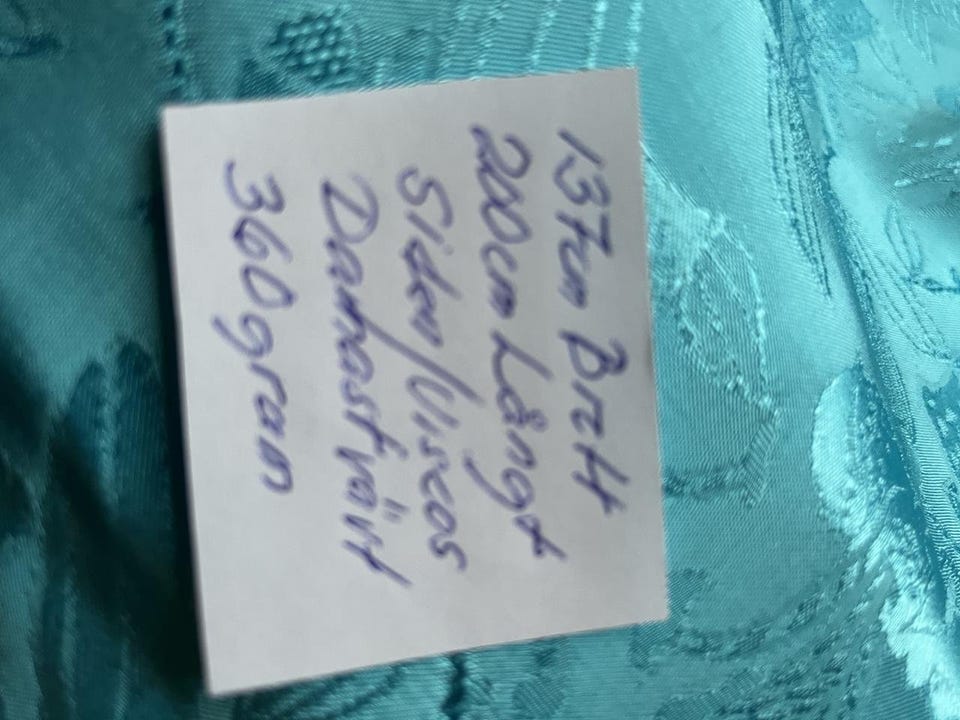 137cm Brett
200cm Långt
Siden/Viscos
Damastvävt
360gram